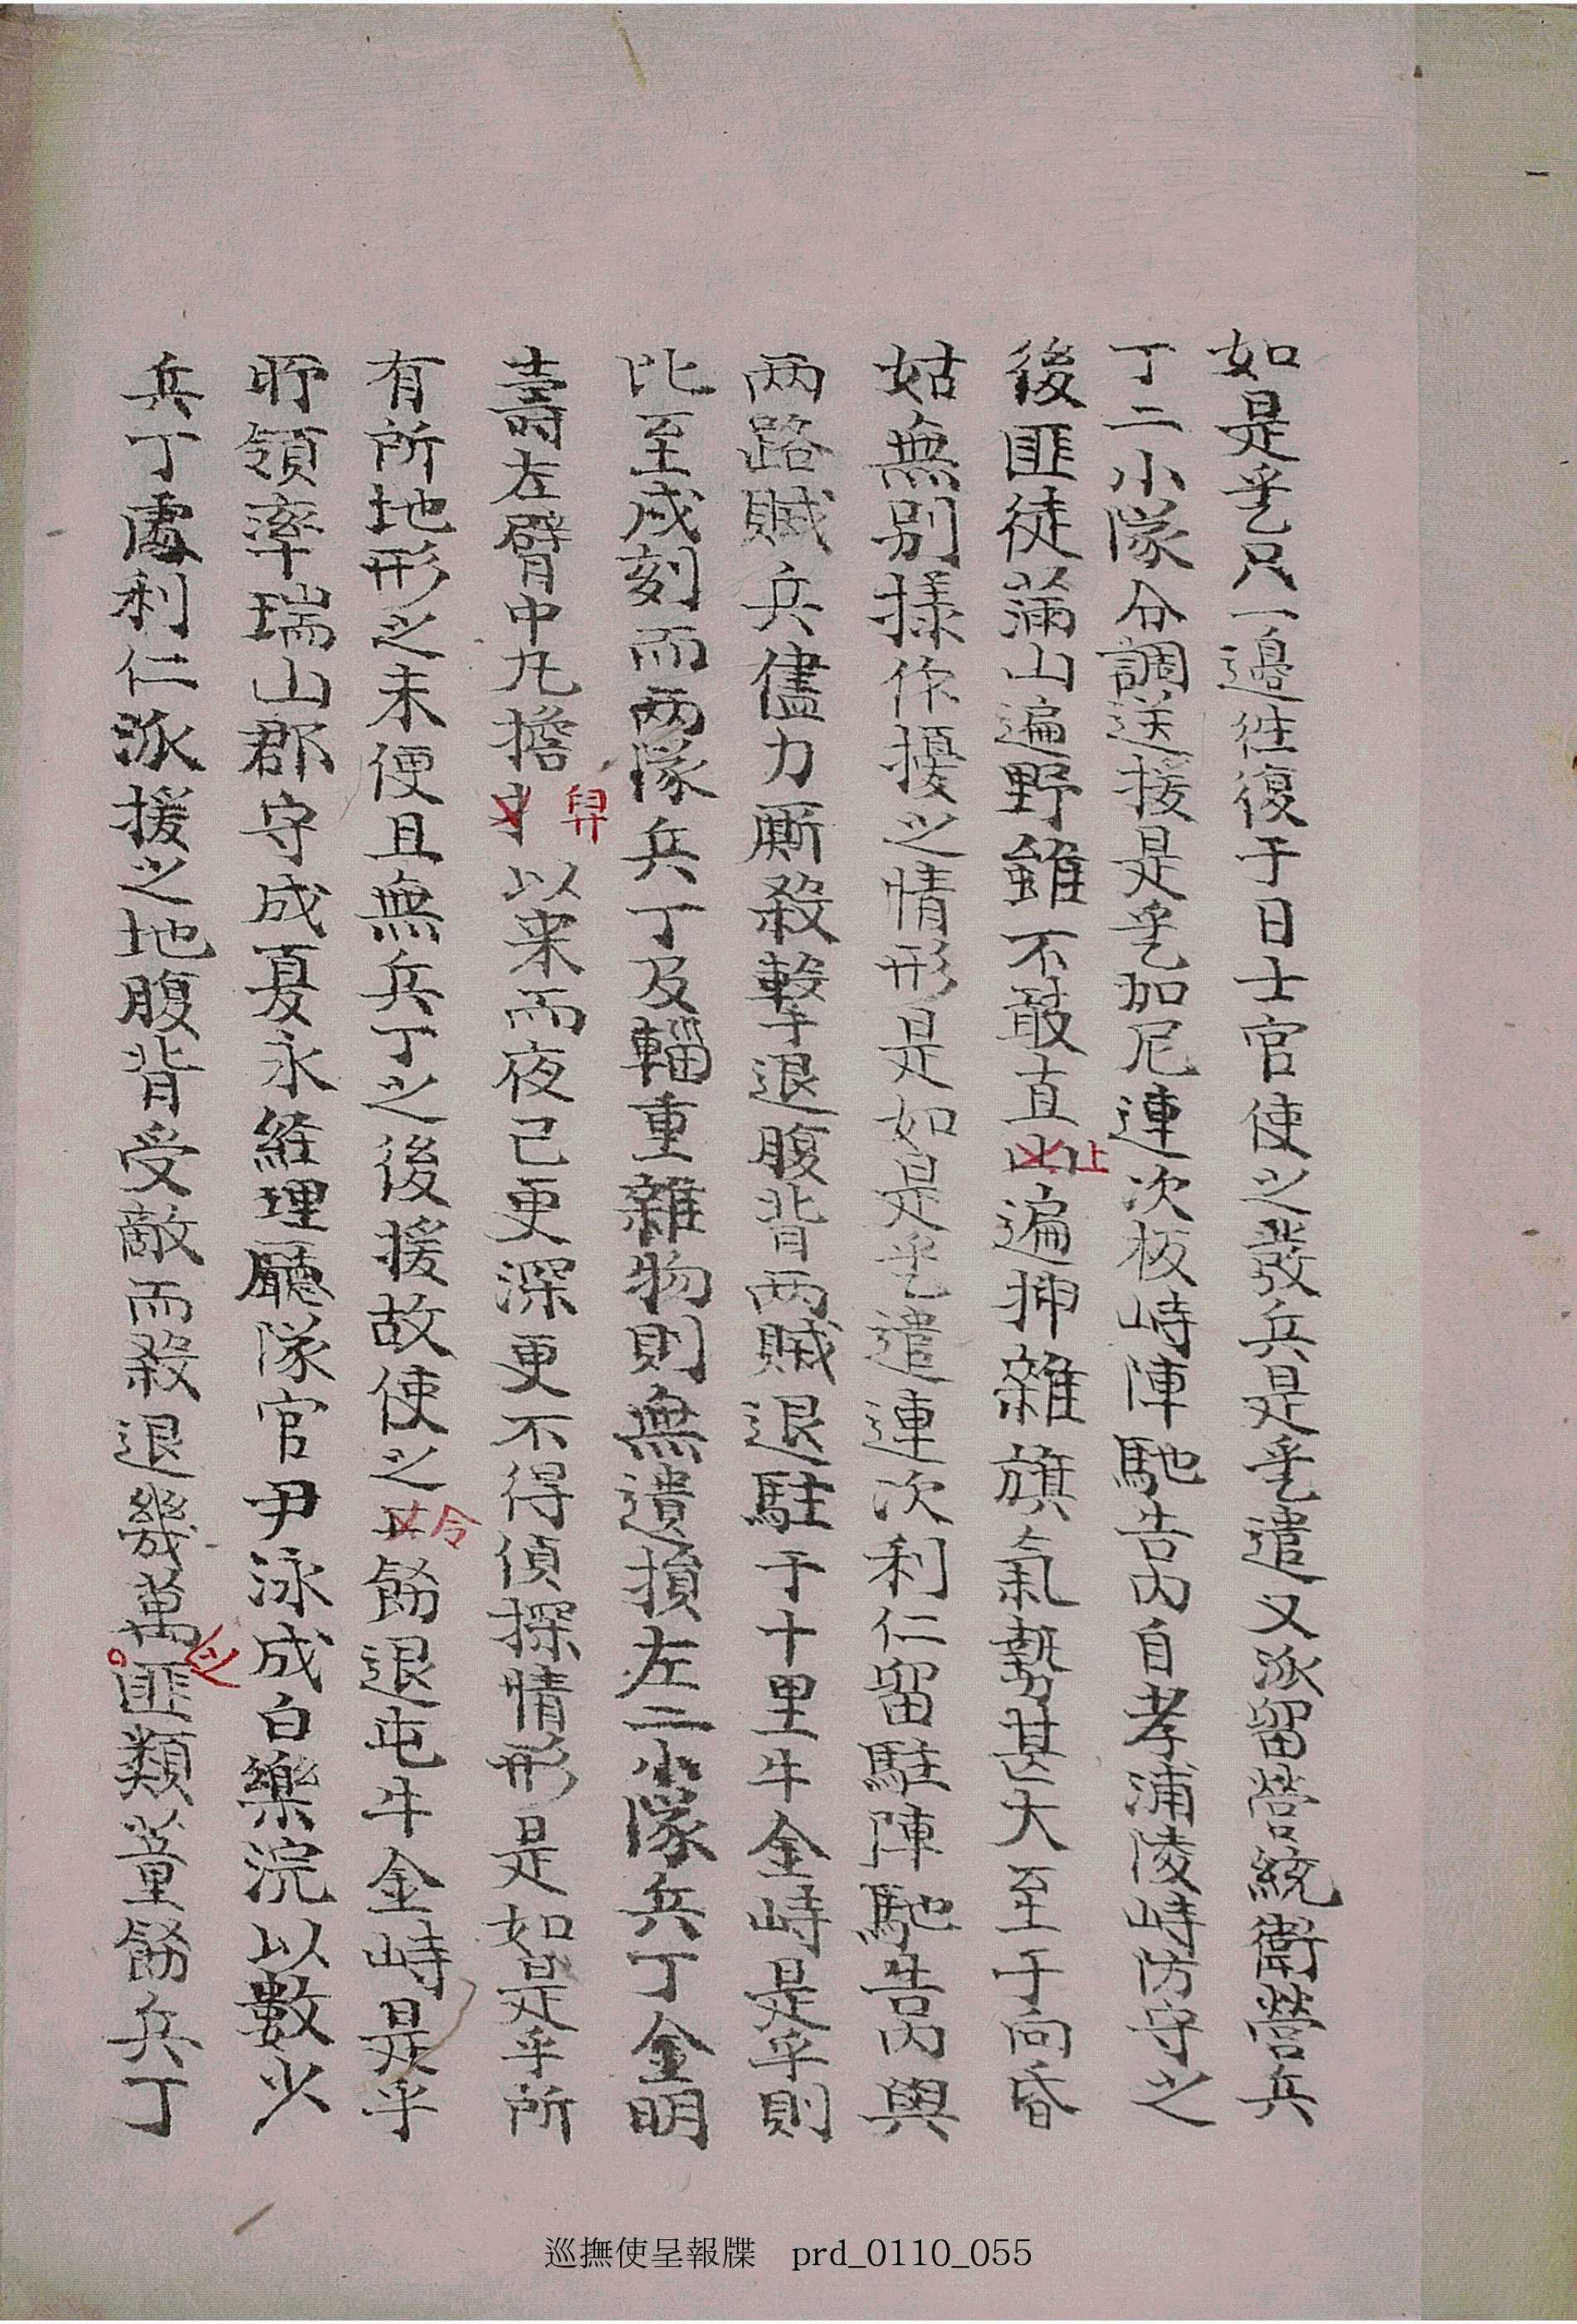 如是乎只一邊往復于日士官使之發兵是乎遣又派留營統衛營兵
丁二小隊分調送援是乎加尼連次板峙陣馳告內自孝浦陵峙防守之
後匪徒蒲山遍野雖不敢直山上遍揷雜旗氣勢甚大至于向昏
姑無別㨾作擾之情形是如是乎遣連次利仁留駐陣馳告內與
兩路賊兵儘力厮殺擊退腹背兩賊退駐于十里牛金峙是乎則
比至戌刻而兩隊兵丁及輜重雜物則無遺損左二小隊兵丁金明
壽左臂中丸擔舁以来而夜已更深更不得偵探情形是如是乎所
有所地形之未便且無兵丁之後援故使之令飭退屯牛金峙是乎
所領率瑞山郡守成夏永經理廳隊官尹泳成白樂浣以數少
兵丁處利仁派援之地腹背受敵而殺退幾萬之匪類董飭兵丁
巡撫使呈報牒 prd_0110_055